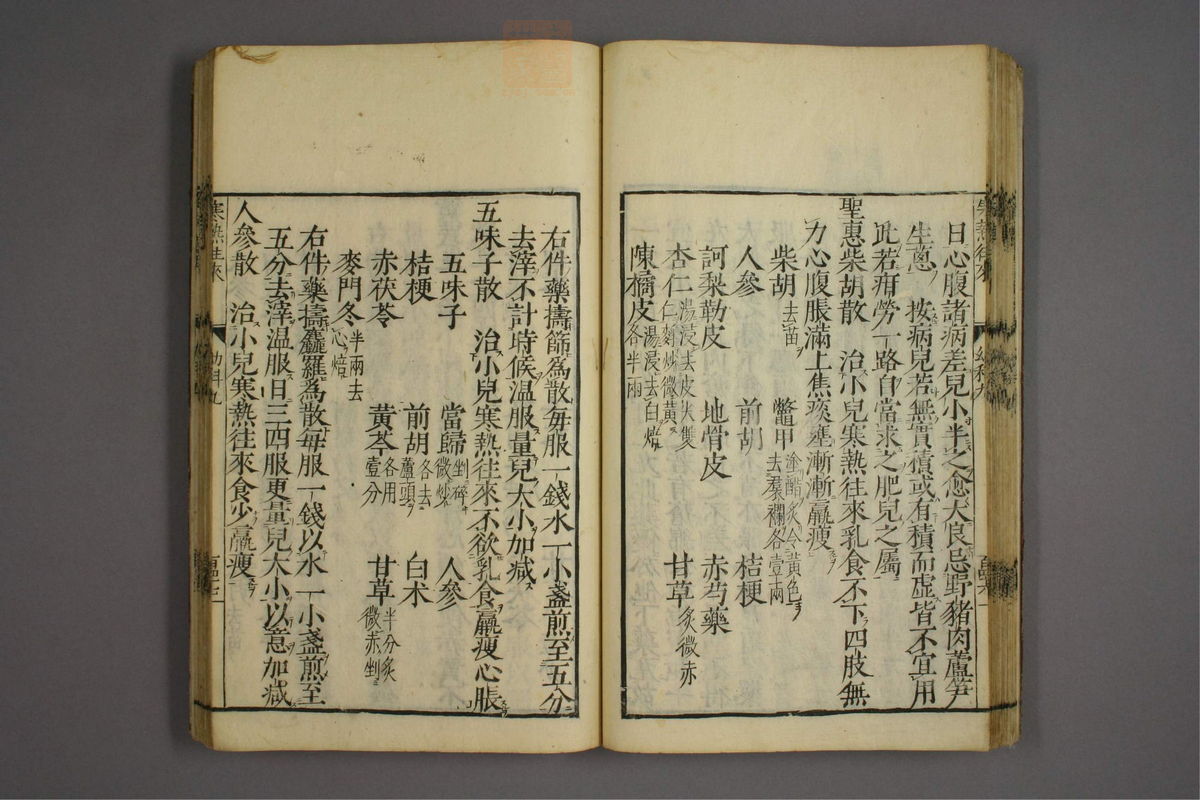 日心腹諸病差兒小半之愈大良忌野豬肉蘆笋
生蔥 按病兒若無實積或有積而虛皆不宜用
此若疳勞一路自當求之肥兒之屬
聖惠柴胡散 治小兒寒熱往來乳食不下四肢無
力心腹脹滿上焦痰壅漸漸羸瘦
柴胡去苗 鱉甲塗醋炙令黃色去羣襴各壹兩
人參 前胡 桔梗
訶梨勒皮 地骨皮 赤芍藥
杏仁湯浸去皮尖雙仁麩炒微黃 甘草炙微赤
陳橘皮湯浸去白焙各半兩
右件藥擣篩爲散每服一錢水一小盞煎至五分
去滓不計時候温服量兒大小加減
五味子散 治小兒寒熱往來不欲乳食羸瘦心脹
五味子 當歸剉碎微炒 人參
桔梗 前胡各去蘆頭 白朮
赤茯苓 黃芩各用壹分 甘草半分炙微赤剉
麥門冬半兩去心焙
右件藥擣麤羅爲散每服一錢以水一小盞煎至
五分去滓温服日三四服更量兒大小以意加減
人參散 治小兒寒熱往來食少羸瘦
寒熱往來